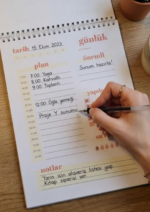 günlük
tarih 15 Ekim 2023
plan
önemli
7:00 Yoga
8:00 Kahvaltı
9:00 Toplantı
Sunum Hazırla!
12:00 Öğle yemeği
Proje Y. sunumu
notlar
Yarın için alışveriş listesi yap.